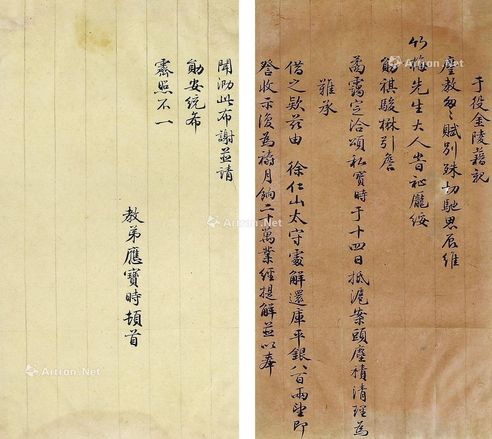 于役金陵藉親
麈教匆匆賦別殊切馳思辰維
竹儒先生大人耆祉麗綏
勛祺駿楙引詹
喬靄定洽頌私寶時于十四日抵滬案頭塵積清理為
難承
借之款茲由 徐仁山太守處解還庫平銀八百兩望即
詧收示復為禱月餉二十萬業經提解並以奉
聞泐此布謝並請
勛安統希
霽照不一
教弟應寶時頓首
Artron.Net
Artron.Net